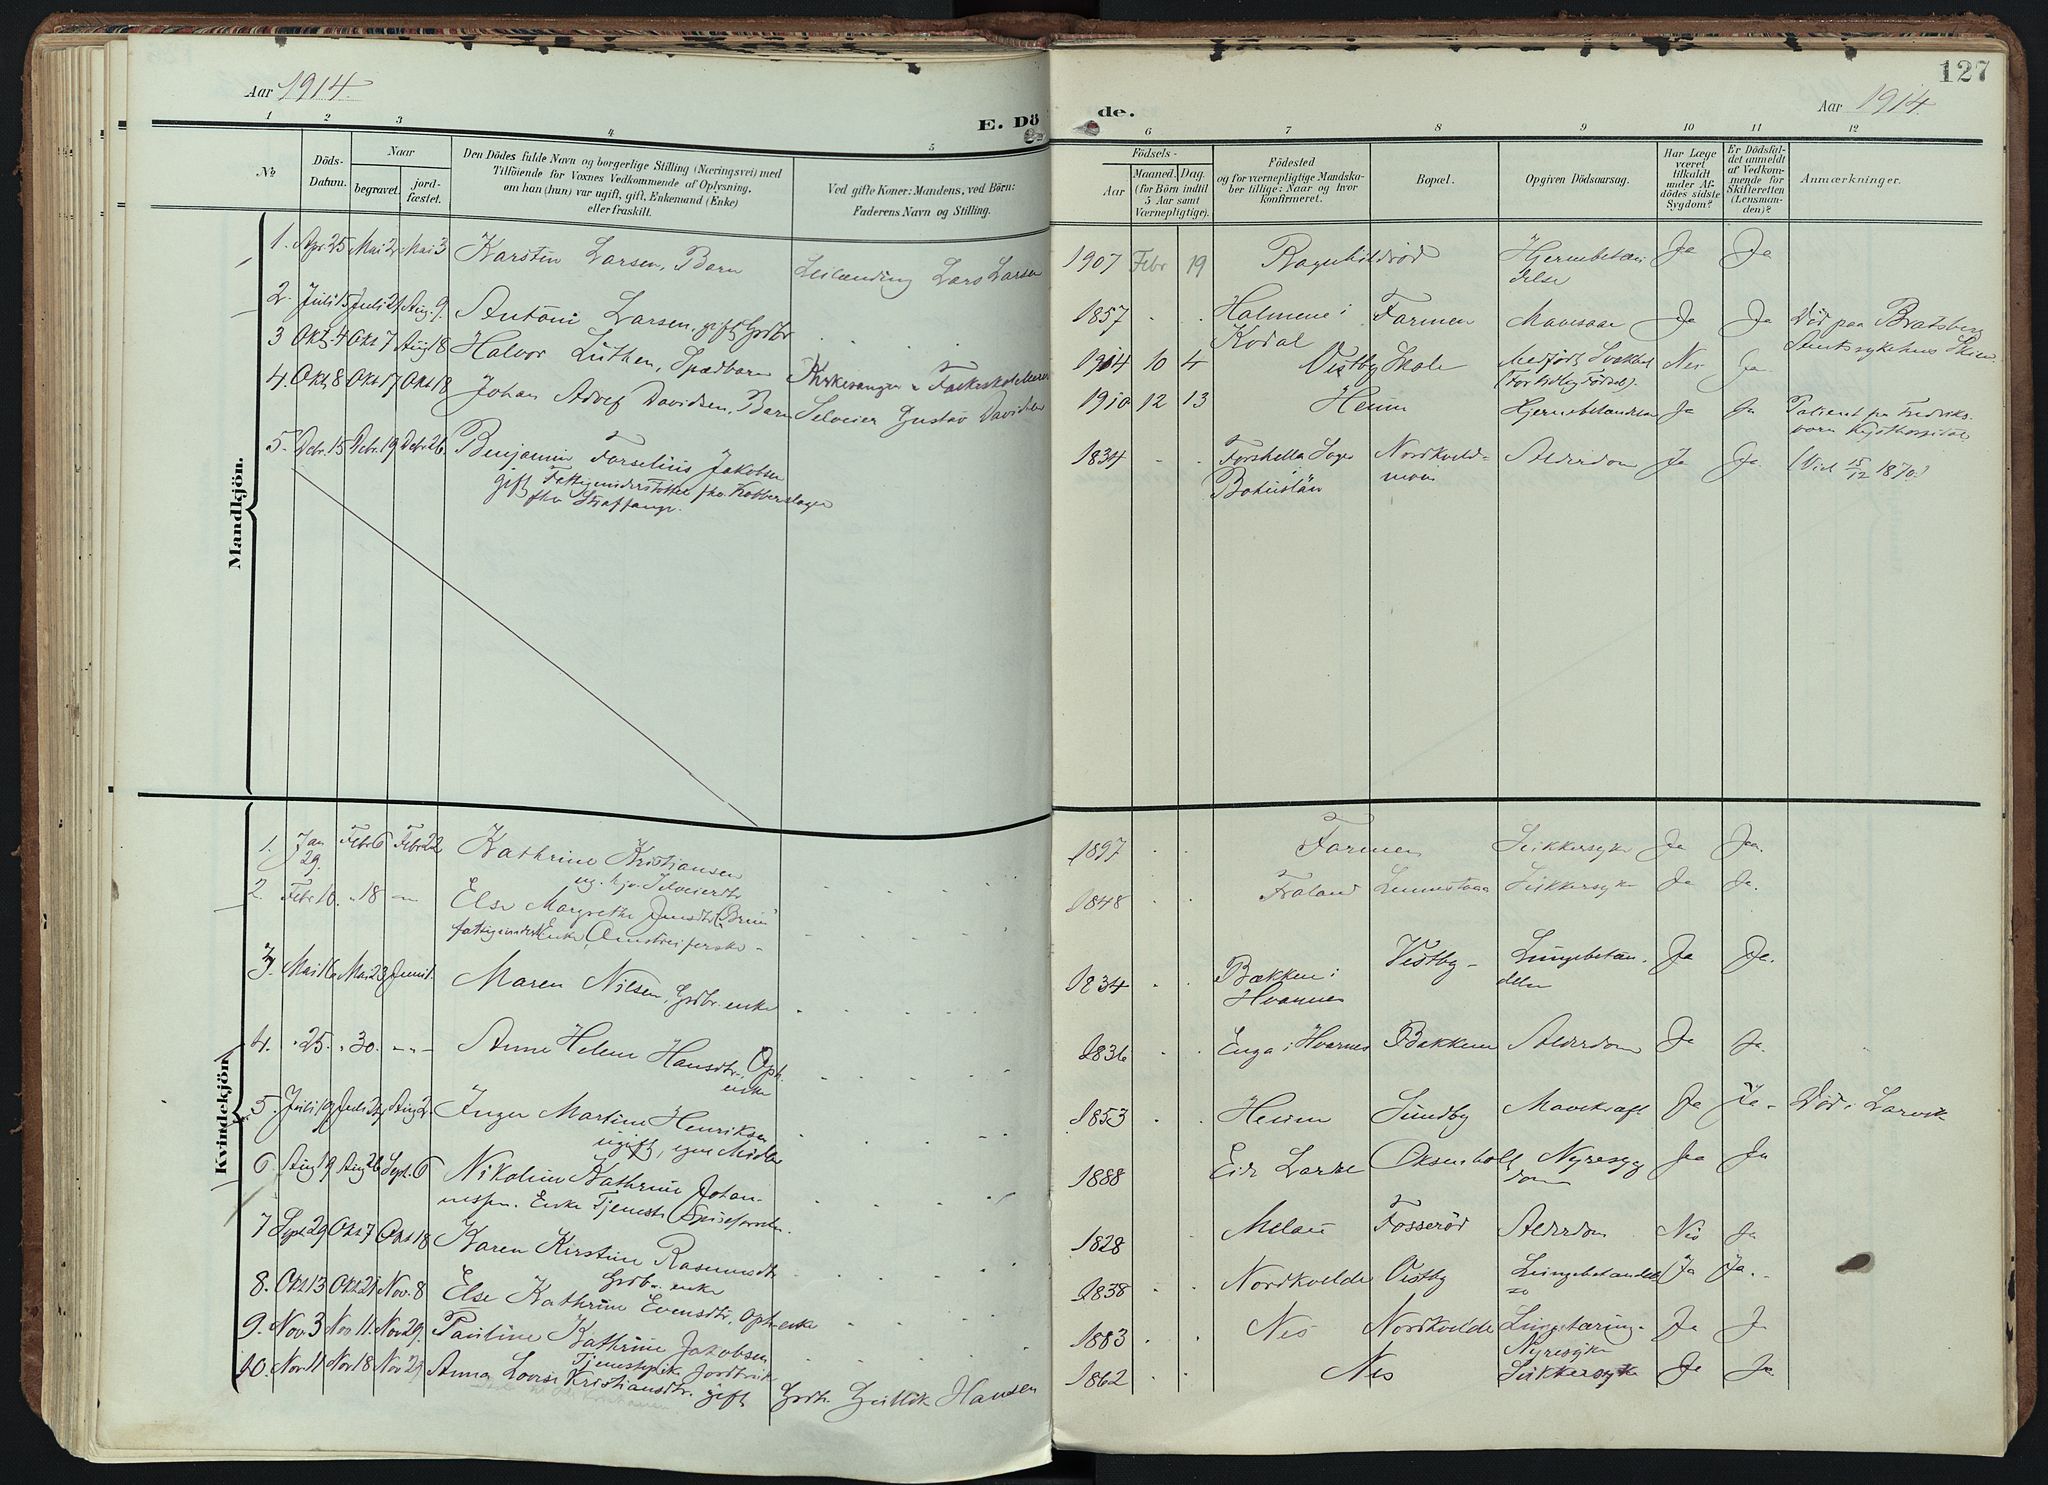 127
Aar 1914.
Aar 1914.
E. Dö de.
1 2 3 4 5 6 7 8 9 10 11 12
No
Döds-
Datum.
Naar
begravet.
jord-
fæstet.
Den Dödes fulde Navn og borgerlige Stilling (Næringsvei) med
Tilföiende for Voxnes Vedkommende af Oplysning,
om han (hun) var ugift, gift, Enkemand (Enke)
eller fraskilt.
Ved gifte Koner: Mandens, ved Börn:
Faderens Navn og Stilling.
Födsels-
Aar
Maaned. Dag.
(for Börn indtil
5 Aar samt
Værnepligtige).
Födested
og for værnepligtige Mandska-
ber tillige: Naar og hvor
konfirmeret.
Bopæl.
Opgiven Dödsaarsag.
Har Læge
været
tilkaldt
under Af-
dödes sidste
Sygdom?
Er Dödsfal-
det anmeldt
af Vedkom-
mende for
Skifteretten
(Lensman-
den)?
Anmærkninger.
Mandkjön.
1. Apr. 25 Mai 2 Mai 3 Karstin Larsen, Barn Leilænding Lars Larsen 1907 Febr 19 Ragnhildröd Hjernebetæn
delse Ja Ja
2. Juli 15 Juli 21 Aug. 9. Antoni Larsen, gift Grdbr 1857 Holmene i
Kodal Farmen Mavesaar Ja Ja Död paa Bratsberg
Amtssykehus Skien
3 Okt. 4 Okt 7 Halvor Luthen, Spædbarn Kirkesanger 1914 10 4 Vestby Skole Medfödt
(For tidlig Födsel). Nei Ja
4. Okt. 8 Okt 17 Okt 18 Johan Adolf Davidsen, Barn Selveier Gustav Davidsen 1910 12 13 Heum Hjernebetændelse Ja Ja Patient
5. Debr. 15 Debr. 19 Debr. 26 Benjamin Forselius Jakobsen
gift Fattigunderstöttet fhv. Kobberslager
fhv Straffange. 1834 Forshella Sogn
Bohuslän Nordkveld-
moen Alderdom Ja Ja (Viet 15/12 1870)
Kvindekjön.
1. Jan
29. Febr 6 Febr 22 Kathrine Kristiansen
ug. hjv. Selveierdtr 1897 Farmen Sukkersyke Ja Jaa.
2. Febr 10. " 18 Else Margrethe Jensdtr
Enke 1848 Sukkersyke Ja Ja.
3. Mai 16 Mai 23 Juni 1. Maren Nilsen, Grdbr. enke 1834 Bækken i
Hvarnes Vestby Lungebetæn-
delse Ja Ja.
4. " 25. " 30. Anne Helene Hansdtr. Oph.
enke 1836 Enga i Hvarnes Bakken Alderdom Ja Ja.
5. Juli 19 Juli 24 Aug 2. Inger Martine Henriksen
ugift, egne Midler 1853 Heum Sundby Mavekræft Ja Ja. Död i Larvik
6 Aug 19 Aug 26 Sept. 6 Nikoline Kathrine Johan-
nessen. Enke Tjenest. 1888 Oksenholt Nyresyg
dom Jaa Ja
7 Sept 29 Okt 7 Okt 18 Karen Kirstine Rasmusdtr
Grdb. enke 1828 Melau Fosseröd Alderdom Nei Ja
8. Okt 13 Okt 21 Nov. 8 Else Kathrine Evensdtr, Oph. enke 1838 Nordkvelde Vestby Lungebetændelse Ja Ja.
9. Nov. 3 Nov. 11. Nov 29. Pauline Kathrine Jakobsen
Tjenestepike 1883 Nes Nordkvelde Lungetæring.
Nyresyke Ja J
10. Nov. 11 Nov 18 Nov 29. Anna Lovise Kristiansdtr. gift Grdb. Hansen 1862 Nes Sukkersyke Ja Ja.